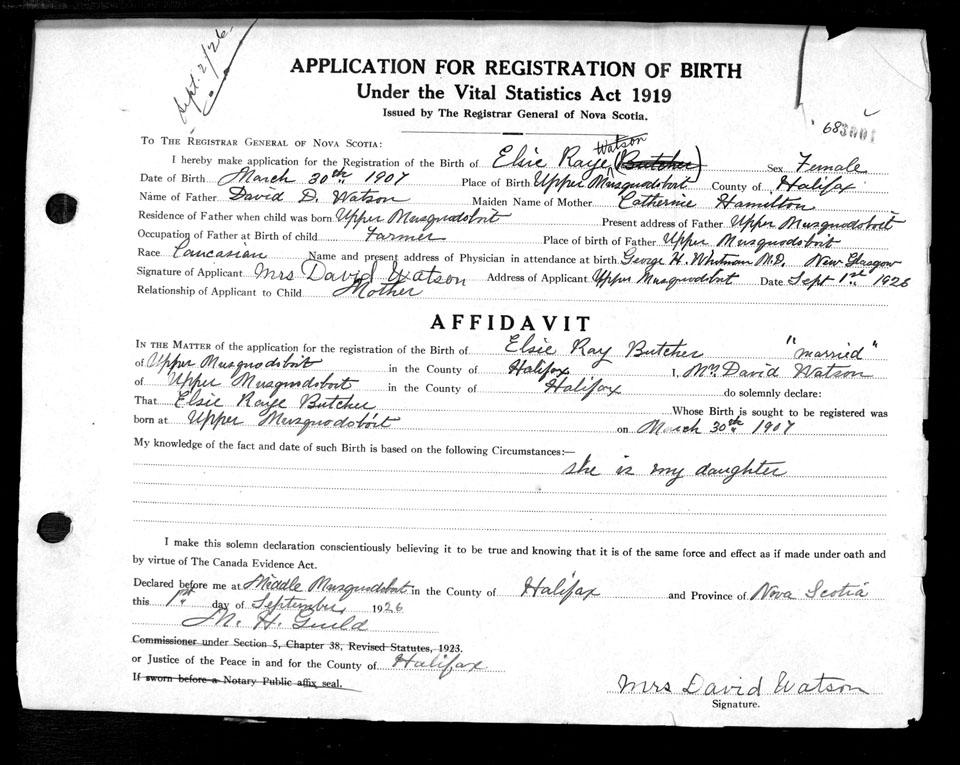 Sept. 2/26.
APPLICATION FOR REGISTRATION OF BIRTH
Under the Vital Statistics Act 1919
Issued by The Registrar General of Nova Scotia.
683001
TO THE REGISTRAR GENERAL OF NOVA SCOTIA:
Watson
I hereby make application for the Registration of the Birth of Elsie Raye (Butcher) Sex Female
Date of Birth March 30th 1907 Place of Birth Upper Musquodoboit County of Halifax
Name of Father David D. Watson Maiden Name of Mother Catherine Hamilton
Residence of Father when child was born Upper Musquodoboit Present address of Father Upper Musquodoboit
Occupation of Father at Birth of child Farmer Place of birth of Father Upper Musquodoboit
Race Caucasian Name and present address of Physician in attendance at birth George H. Whitman M.D. New Glasgow
Signature of Applicant Mrs David Watson Address of Applicant Upper Musquodoboit Date Sept 1st 1926
Relationship of Applicant to Child Mother
AFFIDAVIT
IN THE MATTER of the application for the registration of the Birth of Elsie Ray Butcher "married"
of Upper Musquodoboit in the County of Halifax I, Mrs David Watson
of Upper Musquodoboit in the County of Halifax do solemnly declare:
That Elsie Raye Butcher Whose Birth is sought to be registered was
born at Upper Musquodoboit on March 30th 1907
My knowledge of the fact and date of such Birth is based on the following Circumstances:—
she is my daughter
I make this solemn declaration conscientiously believing it to be true and knowing that it is of the same force and effect as if made under oath and
by virtue of The Canada Evidence Act.
Declared before me at Middle Musquodoboit in the County of Halifax and Province of Nova Scotia
this 1st day of September 1926
M. H. Guild
Commissioner under Section 5, Chapter 38, Revised Statutes, 1923.
or Justice of the Peace in and for the County of Halifax
If sworn before a Notary Public affix seal.
Mrs David Watson
Signature.